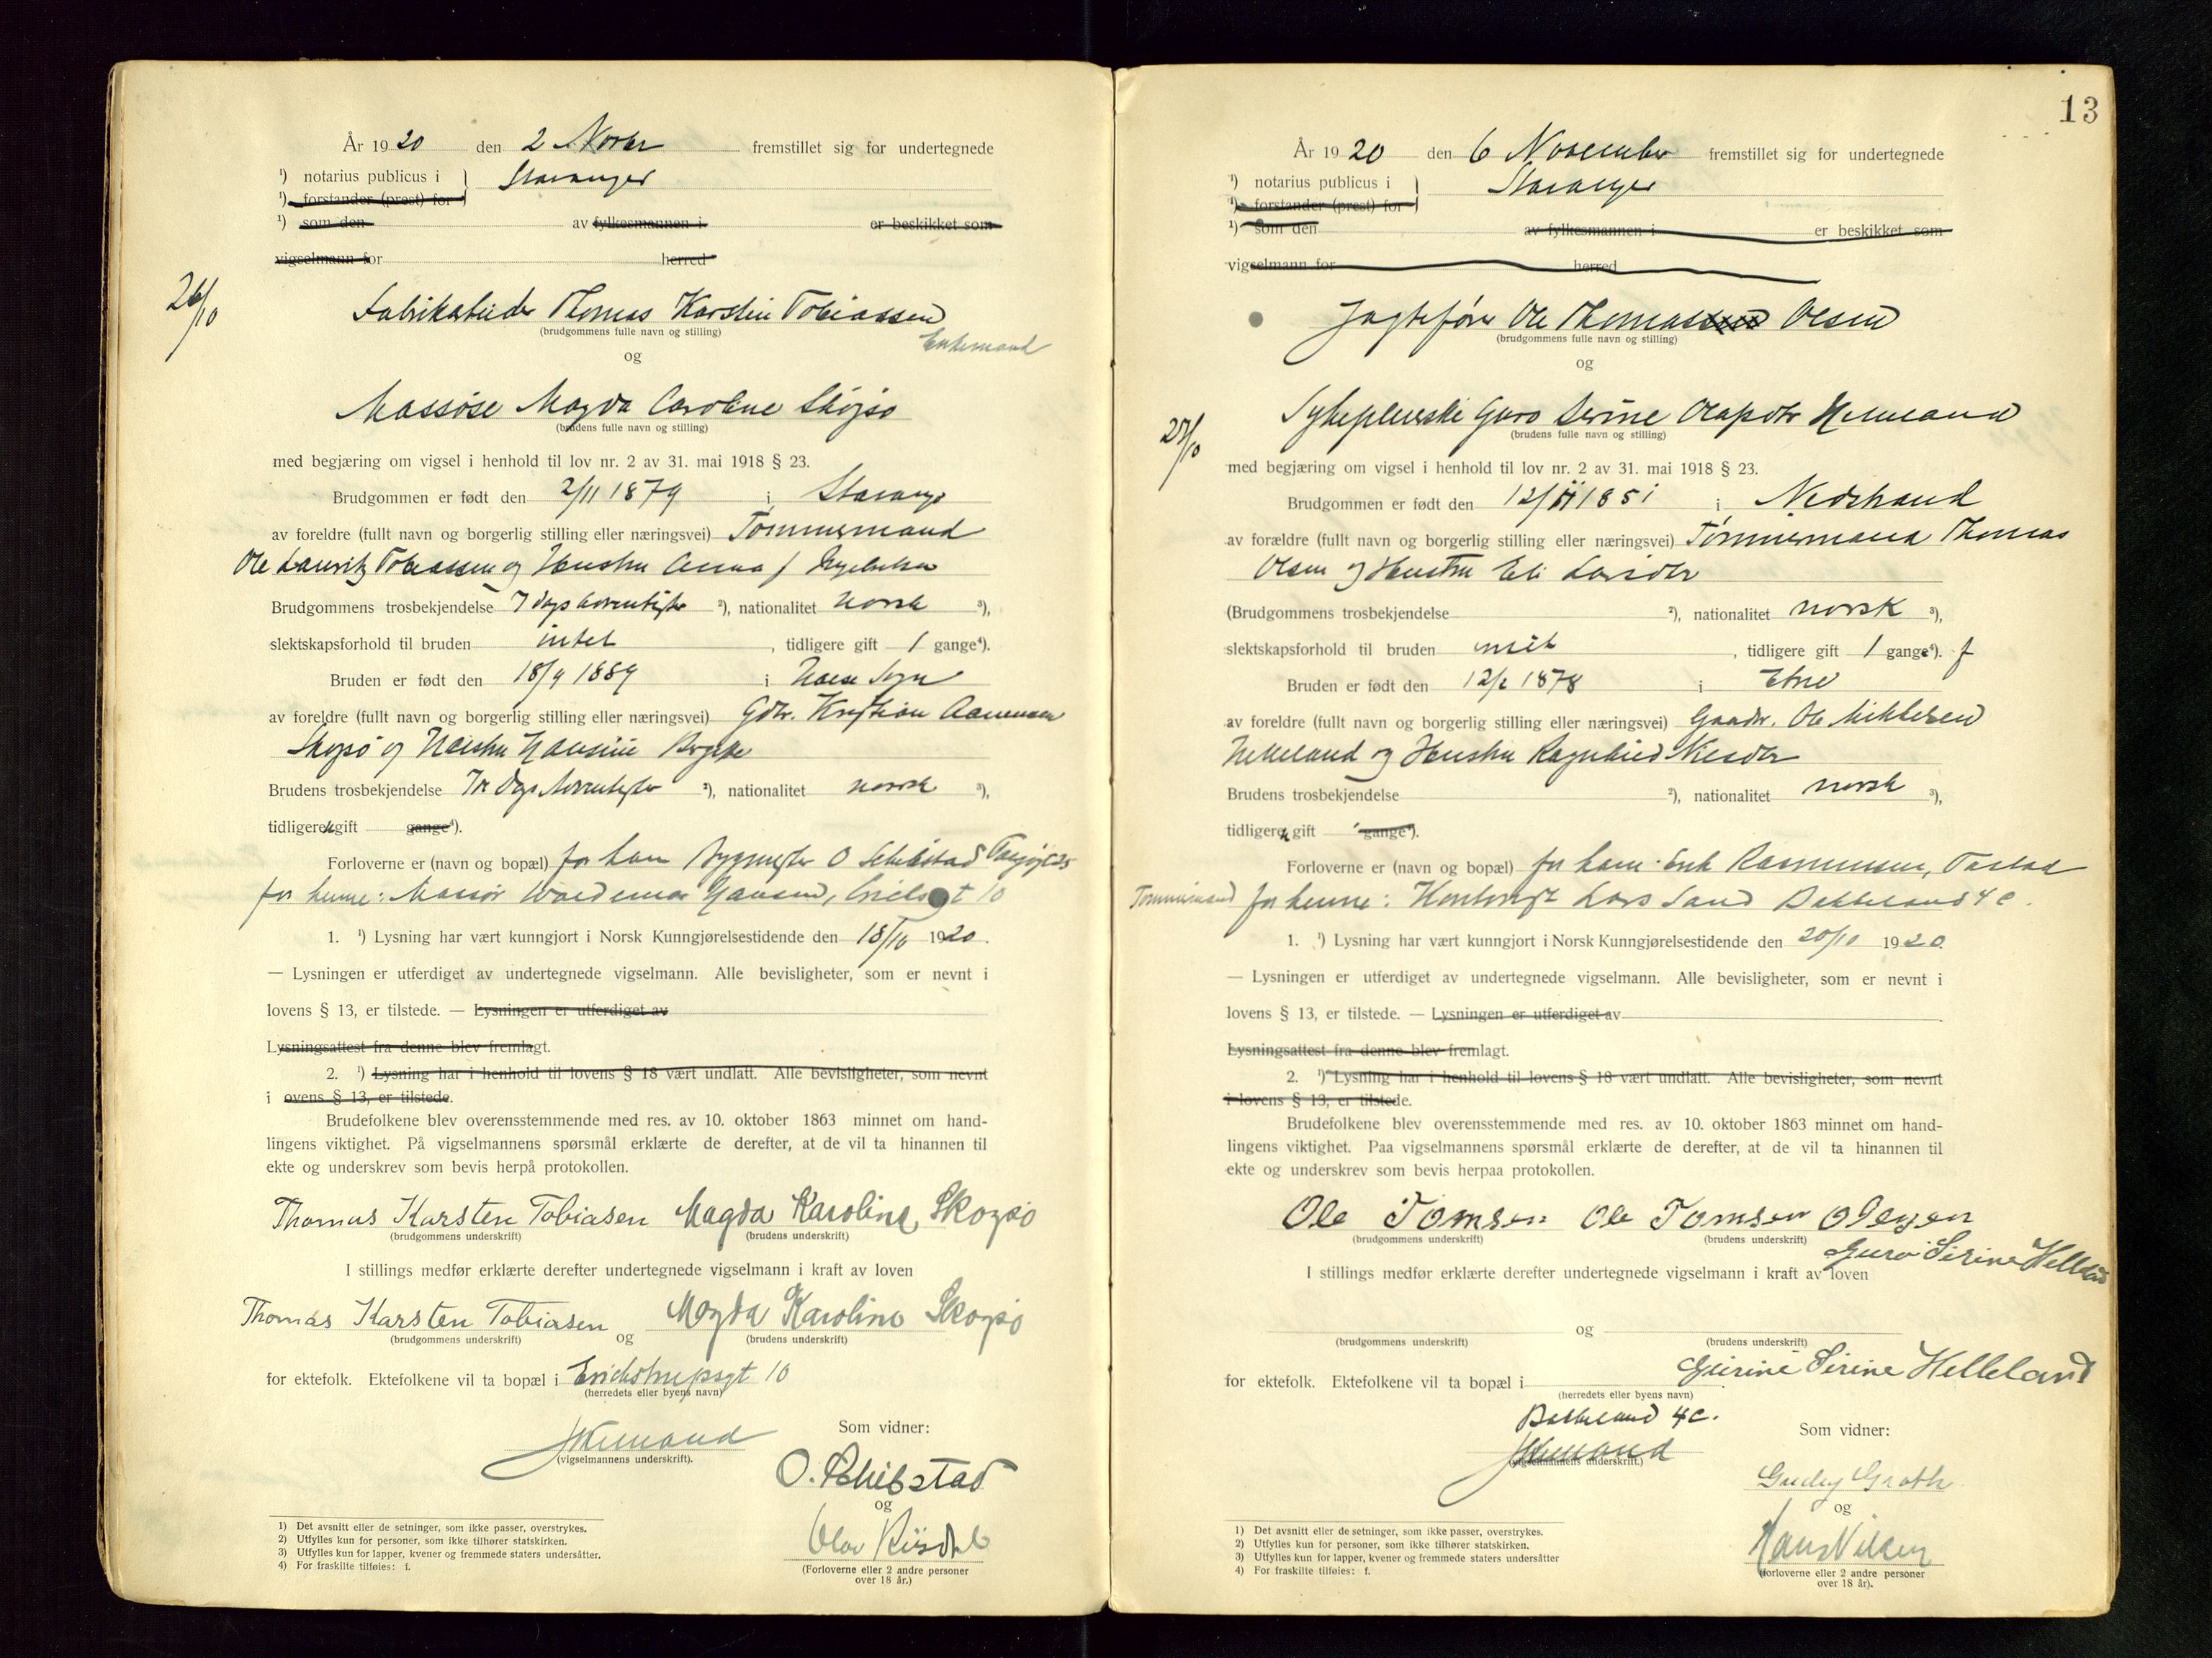 År 1920 den 2 Novbr fremstillet sig for undertegnede
¹) notarius publicus i Stavanger
¹) forstander (prest) for
¹) som den av fylkesmannen i er beskikket som
vigselmann for herred
26/10
Thomas Karsten Tobiassen
(brudgommens fulle navn og stilling)
Enkemand
og
Massøse Magda Caroline Skogsø
(brudens fulle navn og stilling)
med begjæring om vigsel i henhold til lov nr. 2 av 31. mai 1918 § 23.
Brudgommen er født den 2/11 1879 i Stavanger
av foreldre (fullt navn og borgerlig stilling eller næringsvei) Tømmermand
Ole Lauritz Tobiassen og Hustru Anna f
Brudgommens trosbekjendelse 7 dags adventister ²), nationalitet norsk ³),
slektskapsforhold til bruden intet, tidligere gift 1 gange⁴).
Bruden er født den 18/9 1889 i
av foreldre (fullt navn og borgerlig stilling eller næringsvei) Gdbr. Kristian Aanensen
Skogsø og Hustru Hansine
Brudens trosbekjendelse 7de dags Adventister ²), nationalitet norsk ³),
tidligere ik gift gange⁴).
Forloverne er (navn og bopæl) for ham Bygmester O Schibstad
for henne: Massør Waldemar Hansen, 10
1. ¹) Lysning har vært kunngjort i Norsk Kunngjørelsestidende den 18/10 1920.
— Lysningen er utferdiget av undertegnede vigselmann. Alle bevisligheter, som er nevnt i
lovens § 13, er tilstede. — Lysningen er utferdiget av
Lysningsattest fra denne blev fremlagt.
2. ¹) Lysning har i henhold til lovens § 18 vært undlatt. Alle bevisligheter, som nevnt
i ovens § 13, er tilstede.
Brudefolkene blev overensstemmende med res. av 10. oktober 1863 minnet om hand-
lingens viktighet. På vigselmannens spørsmål erklærte de derefter, at de vil ta hinannen til
ekte og underskrev som bevis herpå protokollen.
Thomas Karsten Tobiasen Magda Karoline Skogsø
(brudgommens underskrift) (brudens underskrift)
I stillings medfør erklærte derefter undertegnede vigselmann i kraft av loven
Thomas Karsten Tobiasen og Magda Karoline Skogsø
(brudgommens underskrift) (brudens underskrift)
for ektefolk. Ektefolkene vil ta bopæl i Erichstrupsgt 10
(herredets eller byens navn)
Som vidner:
(vigselmannens underskrift).
O. Schibstad
og
Olav
(Forloverne eller 2 andre personer
over 18 år.)
1) Det avsnitt eller de setninger, som ikke passer, overstrykes.
2) Utfylles kun for personer, som ikke tilhører statskirken.
3) Utfylles kun for lapper, kvener og fremmede staters undersåtter.
4) For fraskilte tilføies: f.
13
År 1920 den 6 November fremstillet sig for undertegnede
¹) notarius publicus i Stavanger
¹) forstander (prest) for
¹) som den av fylkesmannen i er beskikket som
vigselmann for herred
Jagtefører Ole Thomassen Olsen
(brudgommens fulle navn og stilling)
og
27/10
Sykepleierske Guro Serine Olavsdtr Helleland
(brudens fulle navn og stilling)
med begjæring om vigsel i henhold til lov nr. 2 av 31. mai 1918 § 23.
Brudgommen er født den 12/11 1851 i Nedstrand
av forældre (fullt navn og borgerlig stilling eller næringsvei) Tømmermand Thomas
Olsen og Hustru Eli Larsdtr
(Brudgommens trosbekjendelse ²), nationalitet norsk ³),
slektskapsforhold til bruden intet, tidligere gift 1 gange⁴). f
Bruden er født den 12/2 1878 i Etne
av foreldre (fullt navn og borgerlig stilling eller næringsvei) Gaardbr. Ole Mikkelsen
Helleland og Hustru Ragnhild Nilsdtr
Brudens trosbekjendelse ²), nationalitet norsk ³),
tidligere ik gift gange⁴).
Forloverne er (navn og bopæl) for ham: Erik Rasmussen, Tastad
Tømmermand for henne: Lars Sand Bakkeland 4 c.
1. ¹) Lysning har vært kunngjort i Norsk Kunngjørelsestidende den 20/10 1920.
— Lysningen er utferdiget av undertegnede vigselmann. Alle bevisligheter, som er nevnt i
lovens § 13, er tilstede. — Lysningen er utferdiget av
Lysningsattest fra denne blev fremlagt.
2. ¹) Lysning har i henhold til lovens § 18 vært undlatt. Alle bevisligheter, som nevnt
i lovens § 13, er tilstede.
Brudefolkene blev overensstemmende med res. av 10. oktober 1863 minnet om hand-
lingens viktighet. Paa vigselmannens spørsmål erklærte de derefter, at de vil ta hinannen til
ekte og underskrev som bevis herpaa protokollen.
Ole Tomsen Ole Tomsen Olsen
(brudgommens underskrift) (brudens underskrift)
Guro Sirine Helleland
I stillings medfør erklærte derefter undertegnede vigselmann i kraft av loven
og
(brudgommens underskrift) (brudens underskrift)
Gurine Sirine Helleland
for ektefolk. Ektefolkene vil ta bopæl i
(herredets eller byens navn)
Bakkeland 4c.
Som vidner:
(vigselmannens underskrift.)
Groth
og
Hans Nilsen
(forloverne eller 2 andre personer
over 18 år).
1) Det avsnitt eller de setninger, som ikke passer, overstrykes.
2) Utfylles kun for personer, som ikke tilhører statskirken.
3) Utfylles kun for lapper, kvener og fremmede staters undersåtter
4) For fraskilte tilføies: f.